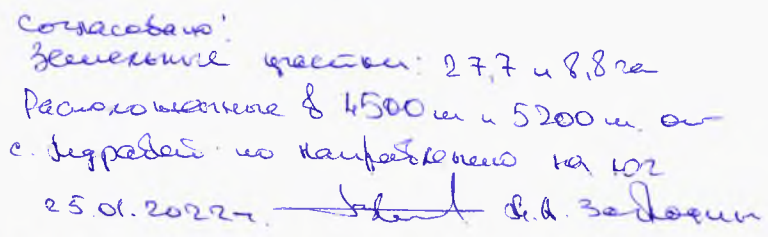 Согласовано!
Земельные участки: 27,7 и 8,8 га
Расположенные в 4500 м и 5200 м от
с. по направлению на юг
25.01.2022 г.